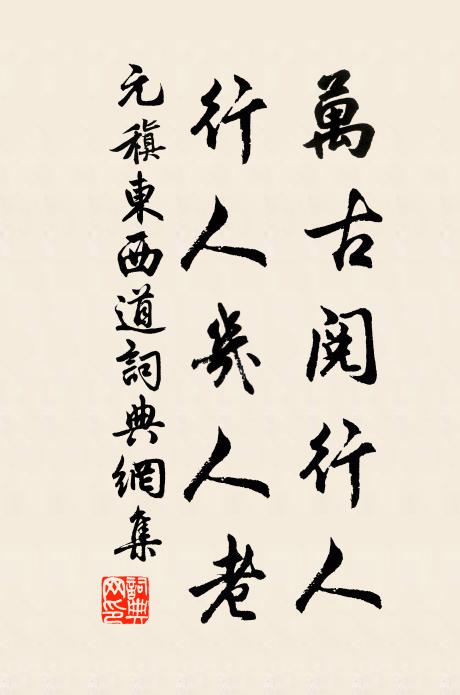 萬古閱行人
行人幾人老
元稹東西道詞典網集
詞典网印